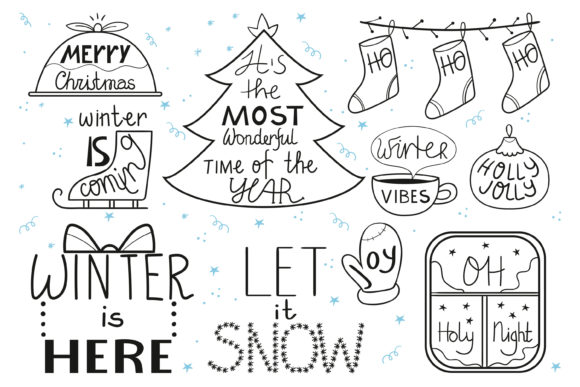 MERRY
Christmas
It's
the
MOST
Wonderful
TIME of the
YEAR
HO
HO
HO
winter
IS
coming
Winter
VIBES
HOLLY
JOLLY
WINTER
is
HERE
LET
it
SNOW
Joy
OH
Holy Night